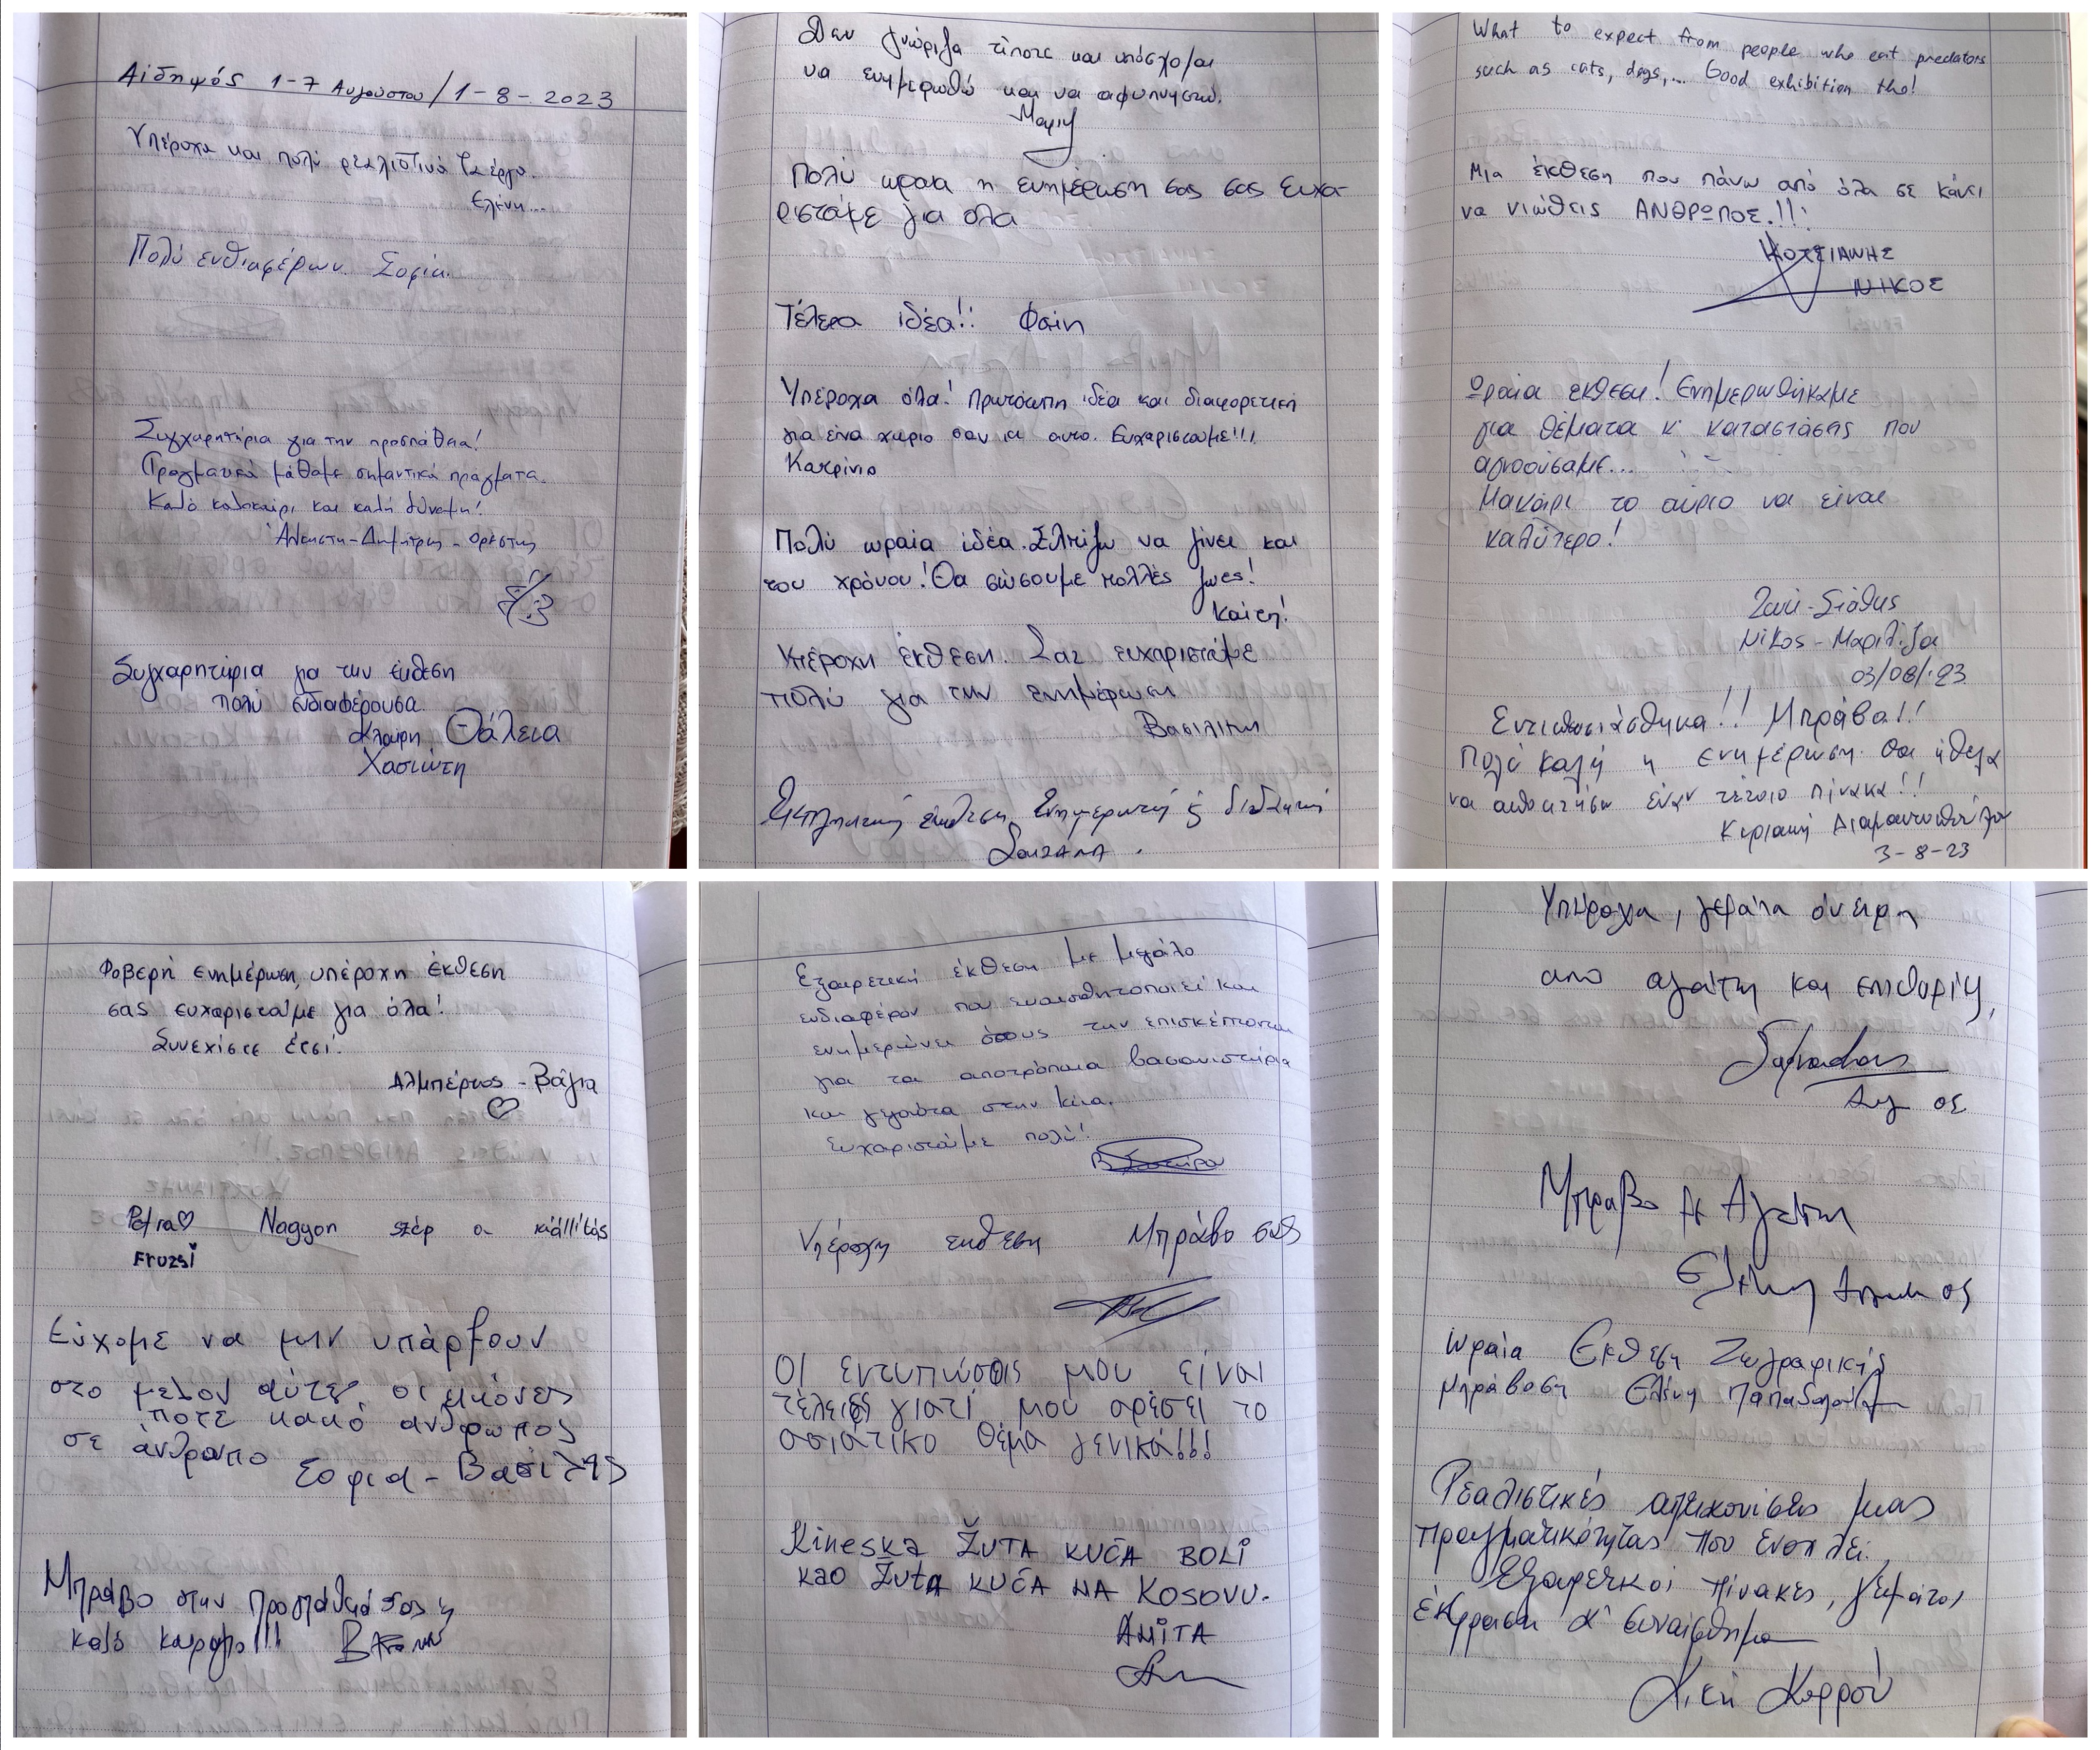 Αιδηψός 1-7 Αυγούστου/1-8-2023
Υπέροχα και πολύ ρεαλιστικά τα έργα.
Ελένη...
Πολύ ενθιαφέρων. Σοφία.
Συγχαρητήρια για την προσπάθεια!
Πραγματικά μάθαμε σημαντικά πράγματα.
Καλό καλοκαίρι και καλή δύναμη!
Άλκηστη-Δημήτρης-Ορέστης
Συγχαρητήρια για την έκθεση
πολύ ενδιαφέρουσα.
Θάλεια
Χασιώτη
Δεν γνώριζα τίποτε και υπόσχομαι
να ενημερωθώ και να αφυπνηστώ.
Μαρία
Πολύ ωραια η ενημέρωση σας σας ευχα-
ριστάμε για ολα
Τέλεια ιδέα!! Φαίη
Υπέροχα όλα! Πρωτότυπη ιδέα και διαφορετική
για ένα χωριο σαν κι αυτο. Ευχαριστουμε!!!
Πολύ ωραία ιδέα. Ελπίζω να γίνει και
του χρόνου! Θα σώσουμε πολλές ζωες!
Καίτη!
Υπέροχη έκθεση. Σας ευχαριστούμε
πολύ για την ενημέρωση
Βασιλική
Εκπληκτική έκθεση. Ενημερωτική & διδακτική
What to expect from people who eat predators
such as cats, dogs,... Good exhibition tho!
Μια έκθεση που πάνω από όλα σε κάνει
να νιώθεις ΑΝΘΡΩΠΟΣ.!!!
ΚΟΤΣΙΑΝΗΣ
ΝΙΚΟΣ
Ωραία έκθεση! Ενημερωθήκαμε
για θέματα κ' καταστάσης που
αγνοούσαμε...
Μακάρι το αύριο να είναι
καλύτερο!
Ζωή-Στάθης
Νίκος-Μαριλίζα
03/08/'23
Εντυπωσιάσθηκα!! Μπράβο!!
Πολύ καλή η ενημέρωση. Θα ήθελα
να αποκτήσω έναν τέτοιο πίνακα!!
Κυριακή Διαμαντοπούλου
3-8-23
Φοβερή ενημέρωση, υπέροχη έκθεση
σας ευχαριστούμε για όλα!
Συνεχίστε έτσι!
Αλμπέρτος - Βάγια
Petra Nagyon szép a kiállítás
Fruzsi
Εύχομε να μην υπάρξουν
στο μελον αύτες οι εικόνες
ποτε κακό ανθρωπος
σε άνθρωπο
Σοφια-Βασίλης
Μπράβο στην Προσπάθειά σας &
καλό κουράγιο!!!
Εξαιρετική έκθεση με μεγάλο
ενδιαφέρον που ευαισθητοποιεί και
ενημερώνει όσους την επισκέπτονται
για τα αποτρόπαια βασανιστήρια
και γεγονότα στην Κίνα.
Ευχαριστούμε πολύ!
Υπέροχη εκθεση Μπράβο σας
ΟΙ εντυπώσεις μου είναι
τέλειες γιατί μου αρέσει το
ασιάτικο θέμα γενικά!!!
Kineska ŽUTA KUĆA BOLI
kao Žuta KUĆA NA KOSOVU.
ANITA
Υπέροχα, γεμάτα όνειρα
απο αγάπη και επιθυμία,
Αυγ 05
Μπραβο Με Αγαπη
Ελένη
Ωραία Εκθεση Ζωγραφικής
Μπράβο Ελένη Παπαδοπούλου
Ρεαλιστικές απεικονίσεις μιας
πραγματικότητας που ενοχλεί.
Εξαιρετικοί πίνακες, γεμάτοι
έκφραση κ' συναίσθημα